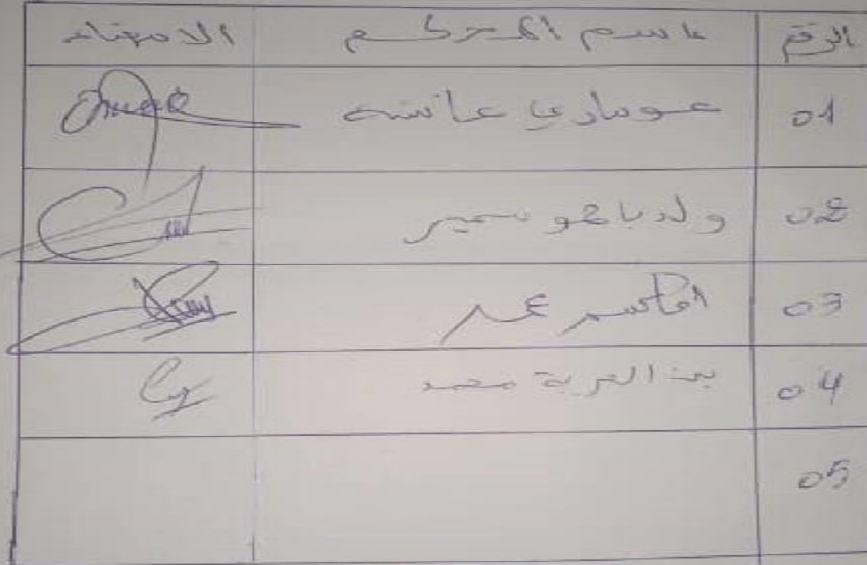 الرقم اسم المحكم الامضاء
01 عومادي عائشة
02 ولد باحو سمير
03 اقاسم عمر
04 بن العربة محمد
05